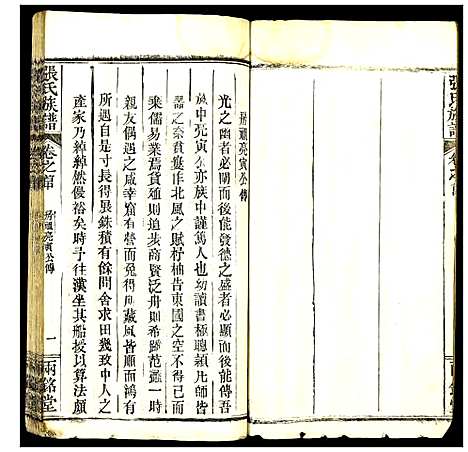 張氏族譜
卷之首
房頭亮寅公傳
光之幽者必闇而後能發德之盛者必顯而後能傳吾
族中亮寅亦族中謹篤人也幼讀書極聰凡師皆
器之奈貧窶北風之賦杼柚告東國之空不得已而
乘儒易業焉貨殖則追步商賢泛舟則希踪范蠡一時
親友偶遇之咸幸竊有營而免得凡藏風皆願而鴻有
所遇自是寸長得展銖積有餘問舍求田幾致中人之
產家乃綽綽然優裕矣時予往漢坐其船授以算法頗
張氏族譜
卷之首
房頭亮寅公傳
一
兩銘堂